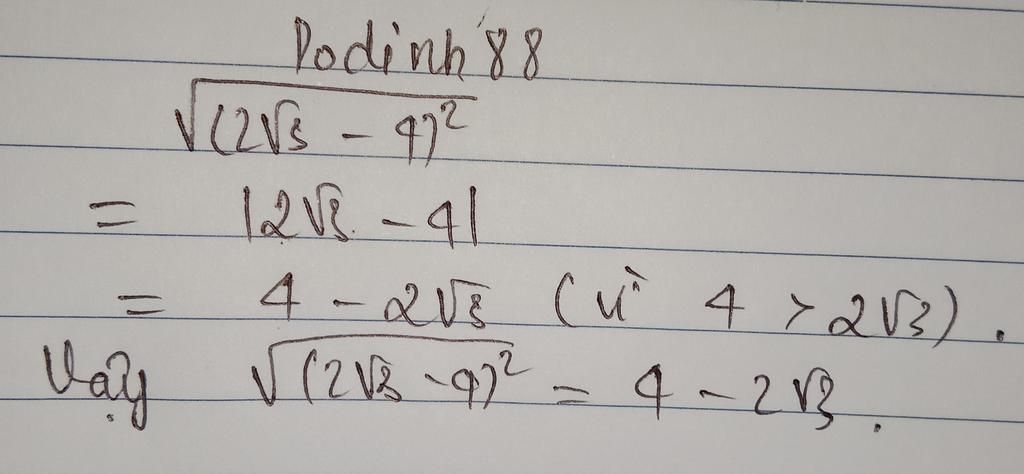 Dodinh'88
√(2√3 - 4)²
= |2√3 - 4|
= 4 - 2√3 (vì 4 > 2√3).
Vậy √(2√3 - 4)² = 4 - 2√3.